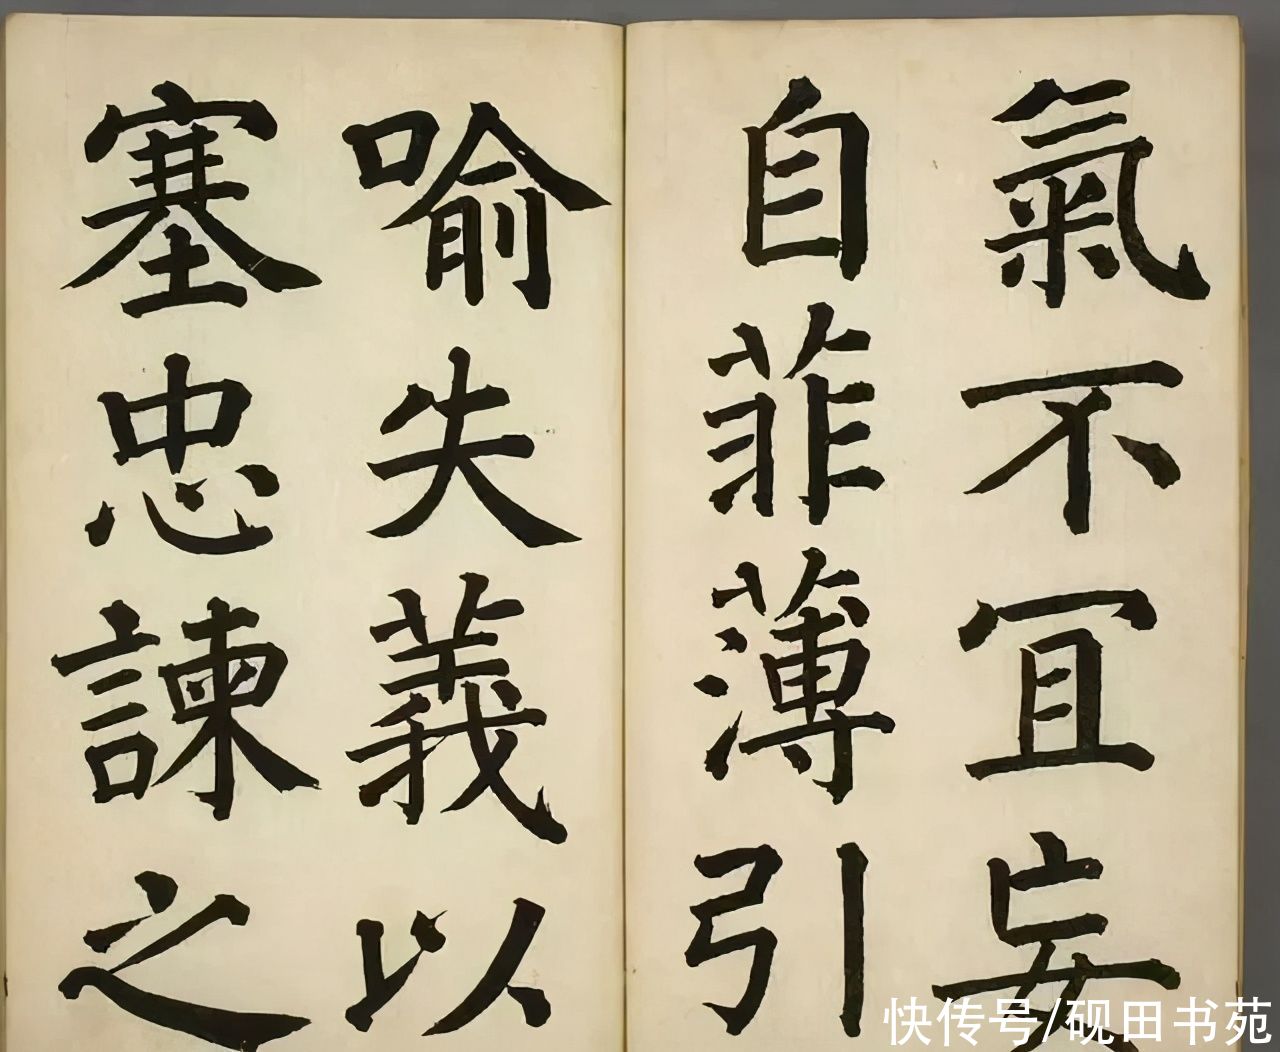 氣不冝妄
自菲薄引
喻失義以
塞忠諫之
快传号/砚田书苑